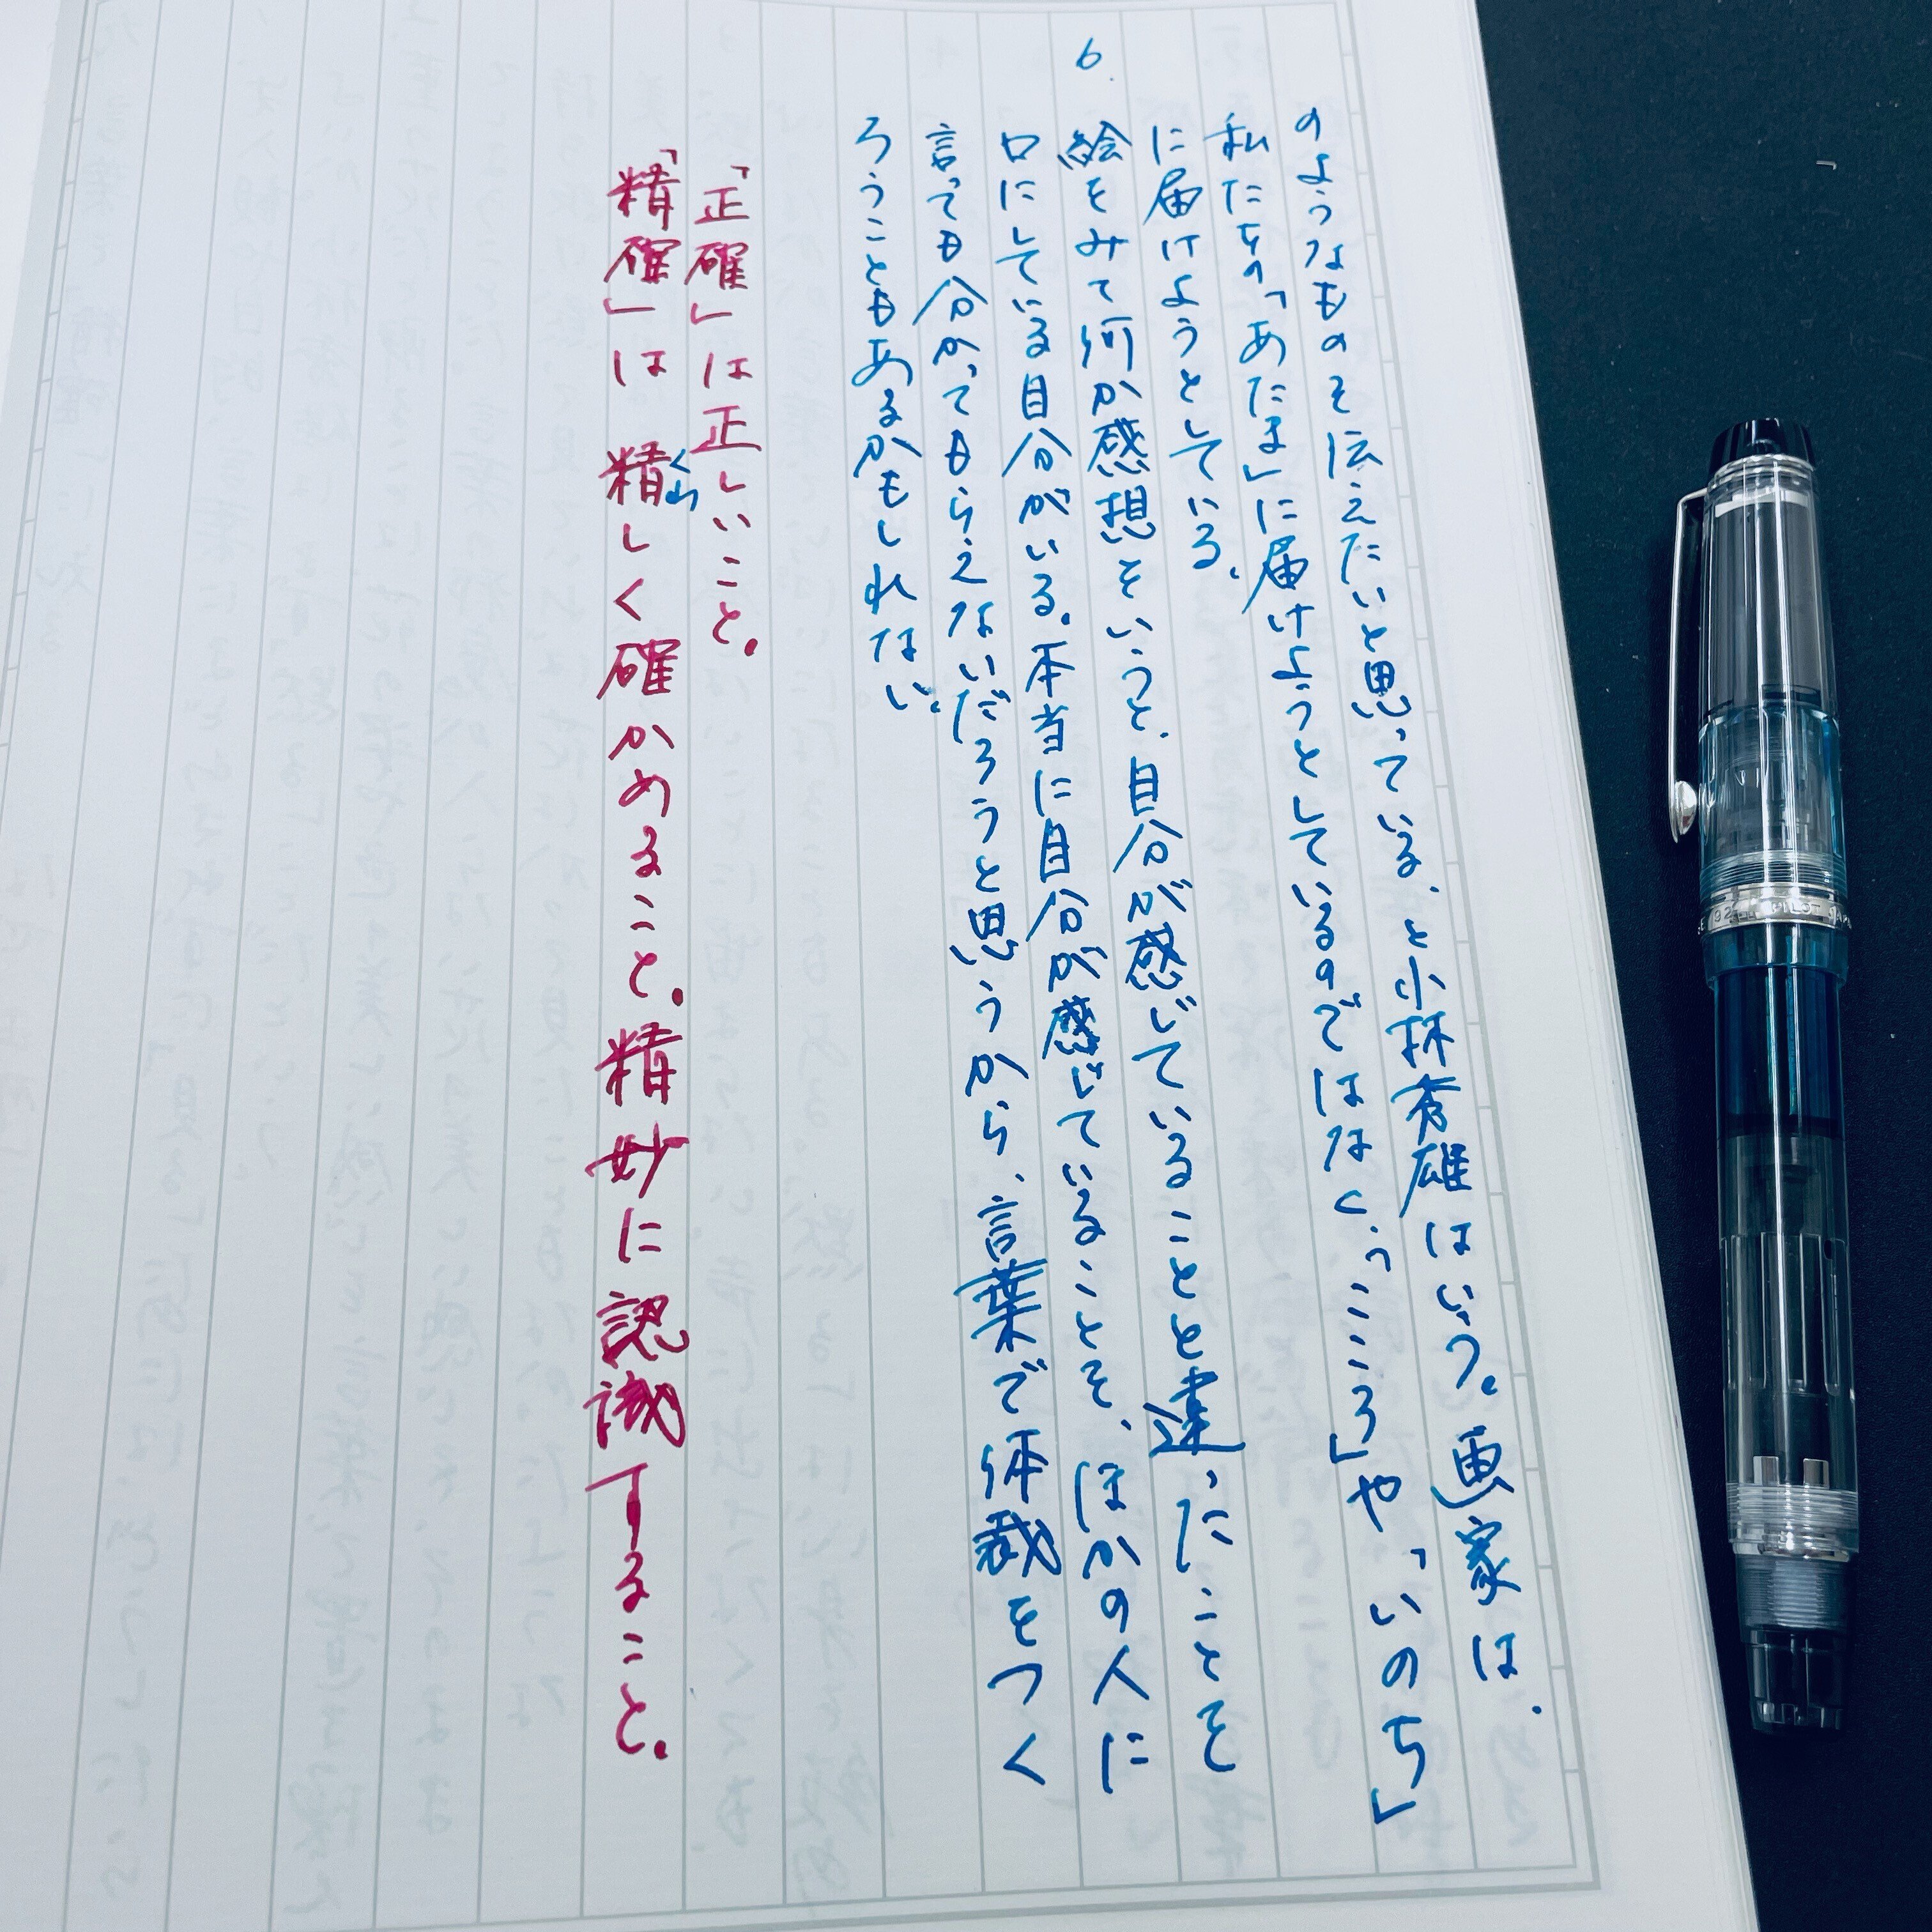 のようなものを伝えたいと思っている、と小林秀雄はいう。画家は、
私たちの「あたま」に届けようとしているのではなく、「こころ」や「いのち」
に届けようとしている。
6
絵をみて何か感想をいうと、自分が感じていることと違ったことを
口にしている自分がいる。本当に自分が感じていることを、ほかの人に
言っても分かってもらえないだろうと思うから、言葉で体裁をつく
ろうこともあるかもしれない。
「正確」は正しいこと。
「精確」は精しく確かめること。精妙に認識すること。
くわ
PILOT JAPA